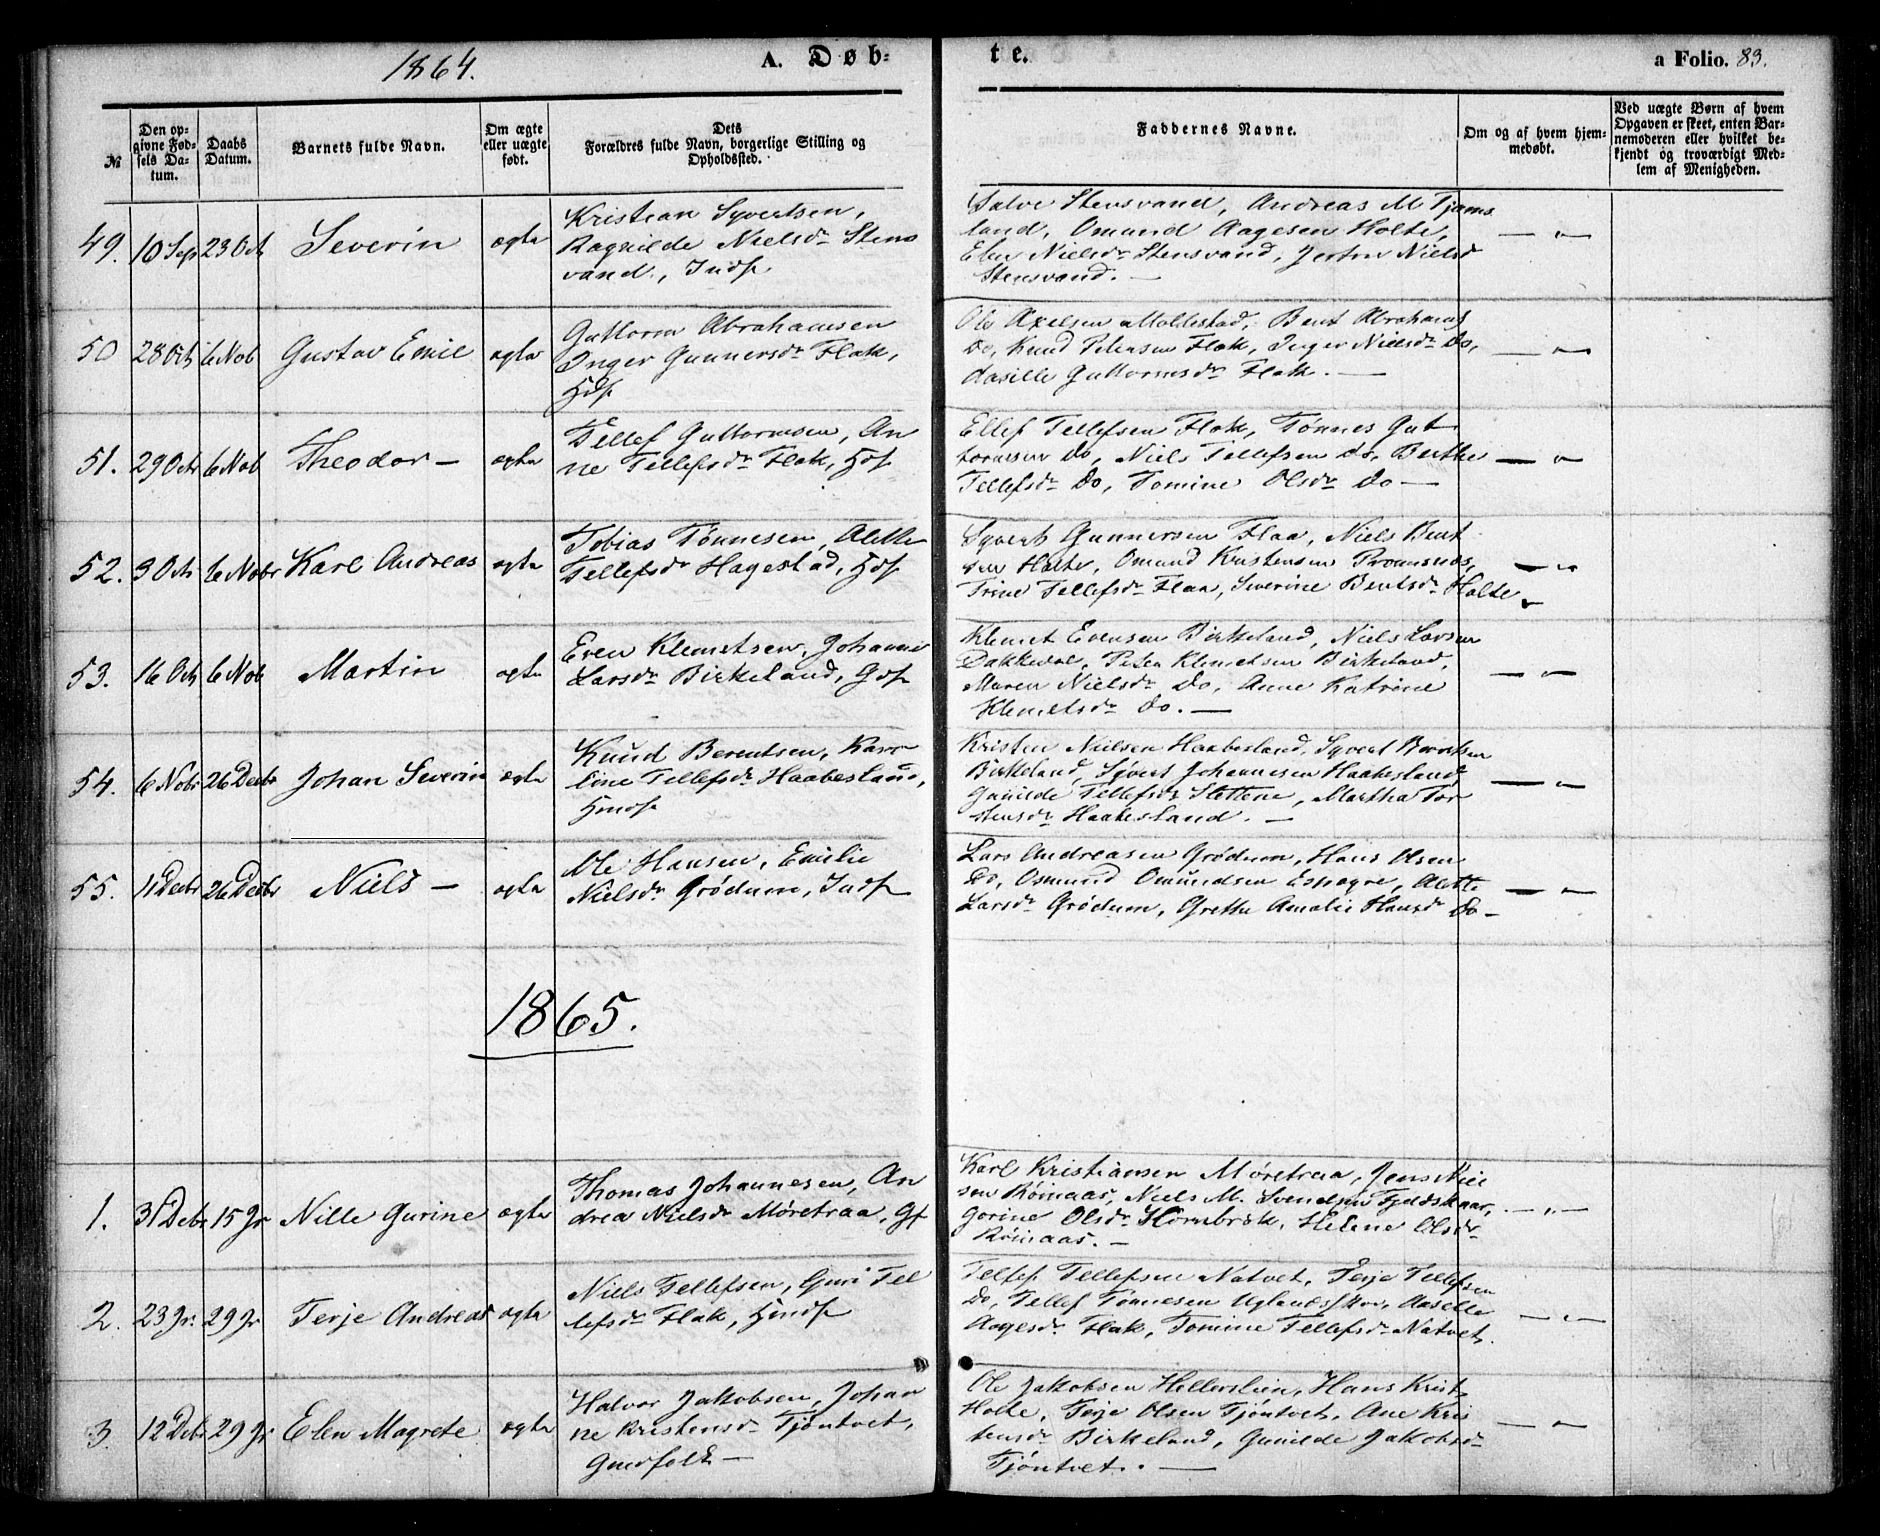 1864.
A. Døb-
te.
a Folio. 83.
№
Den op-
givne Fød-
sels Da-
tum.
Daabs
Datum.
Barnets fulde Navn.
Om ægte
eller uægte
født.
Dets
Forældres fulde Navn, borgerlige Stilling og
Opholdssted.
Faddernes Navne.
Om og af hvem hjem-
medøbt.
Ved uægte Børn af hvem
Opgaven er skeet, enten Bar-
nemoderen eller hvilket be-
kjendt og troværdigt Med-
lem af Menigheden.
49. 10 Sep 23 Oct Severin ægte
Kristian Syvertsen,
Ragnilde Nielsdr Stens
vand, Indf
Salve Stensvand, Andreas M Tjoms
land, Omund Aagesen Holte,
Elen Nielsdr Stensvand, Nielsd
Stensvand. —
— " —
50 28 Oct 6 Nob Gustav Emil ægte
Guttorm Abrahamsen
Inger Gunnersdr Flak,
Hdf
Ole Axelsen Moldestad, Bent Abrahams
Do, Knud Petersen Flak, Inger Nielsdr Do,
Aasille Guttormsdr Flak. —
— " —
51. 29 Octr 6 Nob Theodor — ægte
Tellef Guttormsen, An
ne Tellefsdr Flak, Hdf
Ellef Tellefsen Flak, Tønnes Gut
tormsen Do, Niels Tellefsen Do, Berthe
Tellefsdr Do, Tomine Olsdr Do —
— " —
52. 3 Octr 6 Nobr Karl Andreas ægte
Tobias Tønnesen, Alette
Tellefsdr Hagestad, Hdf
Syvert Gunnersen Flaa, Niels Bent
sen Holte, Omund Kristensen
Trine Tellefsdr Flaa, Severine Bentsdr Holte
— " —
53. 16 Oct 6 Nob Martin ægte
Even Klemetsen, Johanne
Larsdr Birkeland, Gdf
Klemet Evensen Birkeland, Niels Larsen
Dakkedal, Peter Klemetsen Birkeland,
Maren Nielsdr Do, Anne Katrine
Klemetsdr Do. —
— " —
54. 6 Nobr 26 Decbr Johan Severin ægte
Knud Berentsen, Karo
line Tellefsdr Haabesland,
Hmdf
Kristen Nielsen Haabesland, Syvert Berentsen
Birkeland, Sjvert Johannesen Haabesland
Gunilde Tellefsdr Slettene, Martha Tor
stensdr Haabesland. —
— " —
55. 11 Decbr 26 Decbr Niels — ægte
Ole Hansen, Emilie
Nielsdr Grødum, Indf
Lars Andreasen Grødum, Hans Olsen
Do, Osmund Omundsen Espegre, Alette
Larsdr Grødum, Grethe Amalie Hansdr Do —
— " —
1865.
1. 31 Decbr 15 Jr Nille Gurine ægte
Thomas Johannesen, An
drea Nielsdr Møretraa, Gf
Karl Kristiansen Møretraa, Jens Niel
sen Røinaas, Niels M. Svendsen Fjeldskaar,
Gorine Olsdr Hørnbrik, Helene Olsdr
Røinaas. —
— " —
2. 23 Jr. 29 Jr Terje Andreas ægte
Niels Tellefsen, Guri Tel
lefsdr Flak, Hmdf
Tellef Tellefsen Natvet, Terje Tellefsen
Do, Tellef Tønnesen Uglandsskov, Aaselle
Aagesdr Flak, Tomine Tellefsdr Natvet.
— " —
3. 12 Debr 29 Jr Elen Magrete ægte
Halvor Jakobsen, Johan
ne Kristensdr Tjöntvet,
Gmdfolk —
Ole Jakobsen Hellerslien, Hans Krist
Holte, Terje Olsen Tjöntvet, Ane Kris
tensdr Birkeland, Gunilde Jakobsdr
Tjöntvet. —
— " —